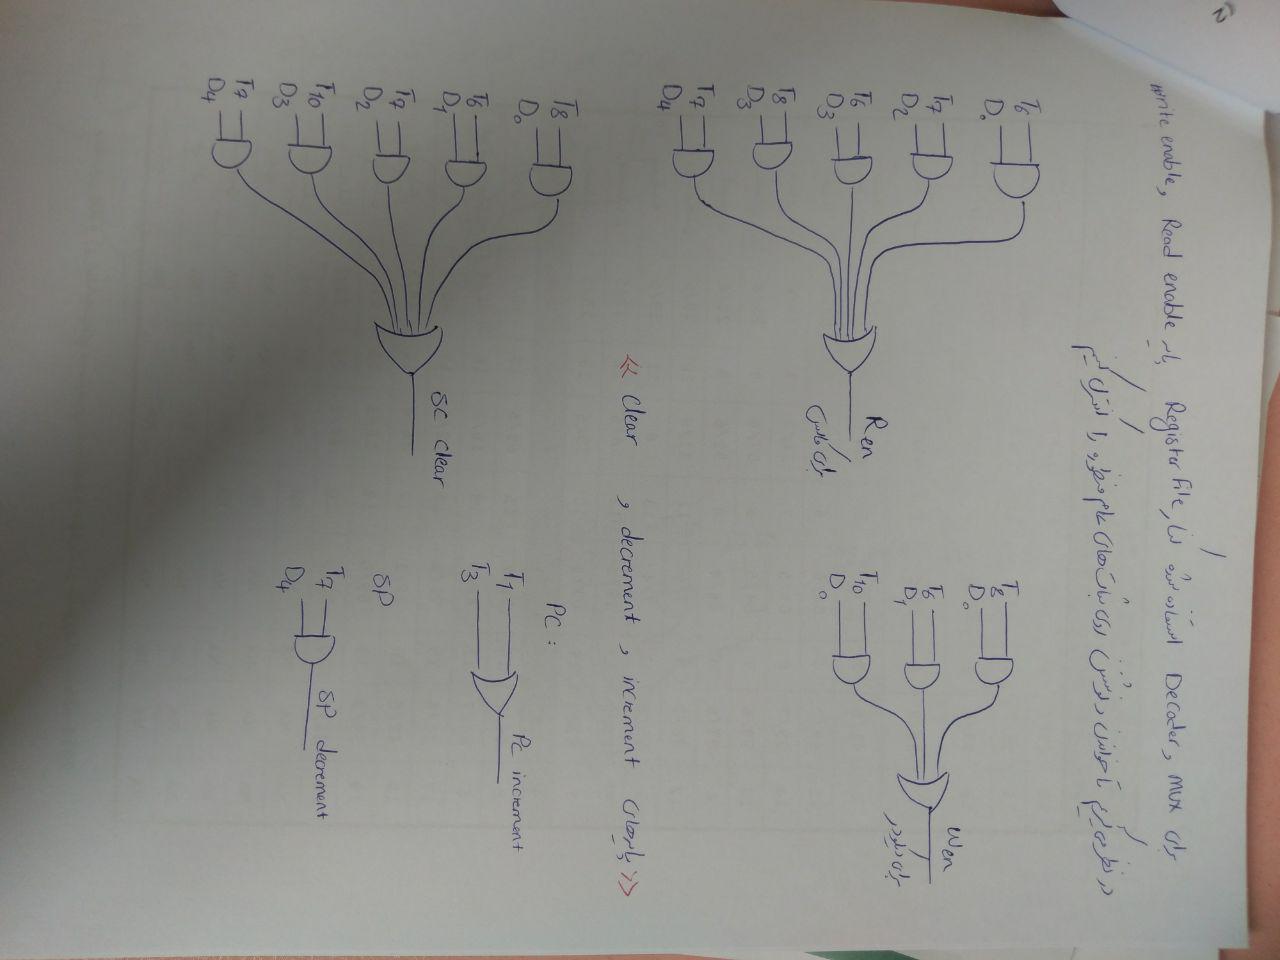 برای mux و Decoder استفاده شده کنار Register File پایه Read enable و write enable
در نظر می گیریم تا خواندن و نوشتن روی ثبات های عام منظوره را کنترل کنیم
T6
D0
T7
D2
T6
D3
T8
D3
T7
D4
Ren
برای ماکس
T8
D0
T6
D1
T10
D0
Wen
برای دیکودر
«پایه های increment و decrement و clear»
T8
D0
T6
D1
T7
D2
T10
D3
T7
D4
SC clear
PC :
T1
T3
PC increment
SP
T7
D4
SP decrement